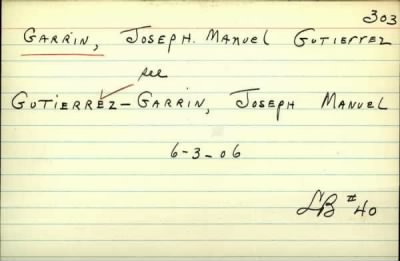 303
GARRIN, JOSEPH. MANUEL GUTIERREZ
see
GUTIERREZ-GARRIN, JOSEPH MANUEL
6-3-06
LB #40